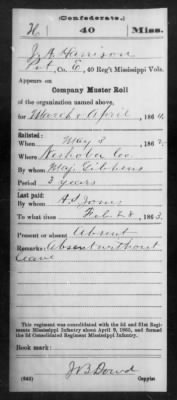 (Confederate.)
H 40 Miss.
J. A. Harrison
Pvt, Co. E, 40 Reg't Mississippi Vols.
Appears on
Company Muster Roll
of the organization named above,
for March & April, 1864.
Enlisted:
When May 3, 1862.
Where Neshoba Co.
By whom Maj. Gibbens
Period 3 years
Last paid:
By whom A. J. Jones
To what time Feb. 28, 1863.
Present or absent Absent
Remarks: Absent without
leave
This regiment was consolidated with the 3d and 31st Regi-
ments Mississippi Infantry about April 9, 1865, and formed
the 3d Consolidated Regiment Mississippi Infantry.
Book mark:
J. B. Dowd
(642) Copyist.